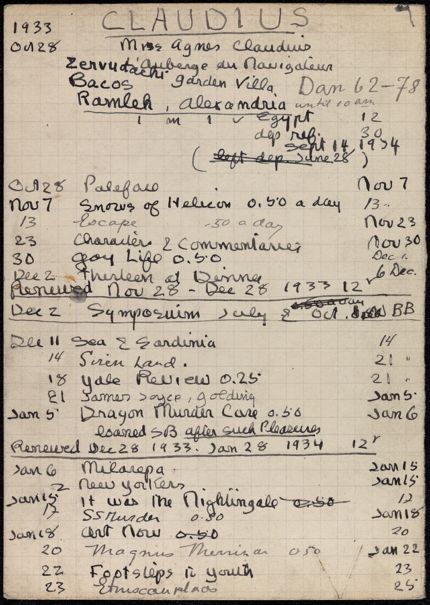 CLAUDIUS
1933
Oct 28 Miss Agnes Claudius
Zervudachi Auberge du Navigateur
Bacos garden Villa Dan 62-78
Ramleh, Alexandria until 10 am
1 m 1 v Egypt 12
dep ref. 30
Sept 14, 1934
(left dep. June 28)
Oct 28 Paleface Nov 7
Nov 7 Snows of Helicon 0.50 a day 13
13 Escape .50 a day Nov 23
23 Characters & Commentaries Nov 30
30 Gay Life 0.50 Dec 1
Dec 2 Thirteen at Dinner 6 Dec.
Renewed Nov 28 - Dec 28 1933 12r
Dec 2 Symposium July & Oct. BB
Dec 11 Sea & Sardinia 14
14 Siren Land. 21
18 Yale Review 0.25 21 "
21 James Joyce, Golding Jan 5
Jan 5 Dragon Murder Case 0.50 Jan 6
loaned SB after such Pleasures
Renewed Dec 28 1933. Jan 28 1934 12r
Jan 6 Milarepa. Jan 15
New Yorkers Jan 15
Jan 15 It was the Nightingale 0.50 17
17 SS Murder 0.50 Jan 18
Jan 18 Art Now 0.50 20
20 Magnus Merriman 0.50 Jan 22
22 Footsteps in youth 23
23 Etruscan places 25